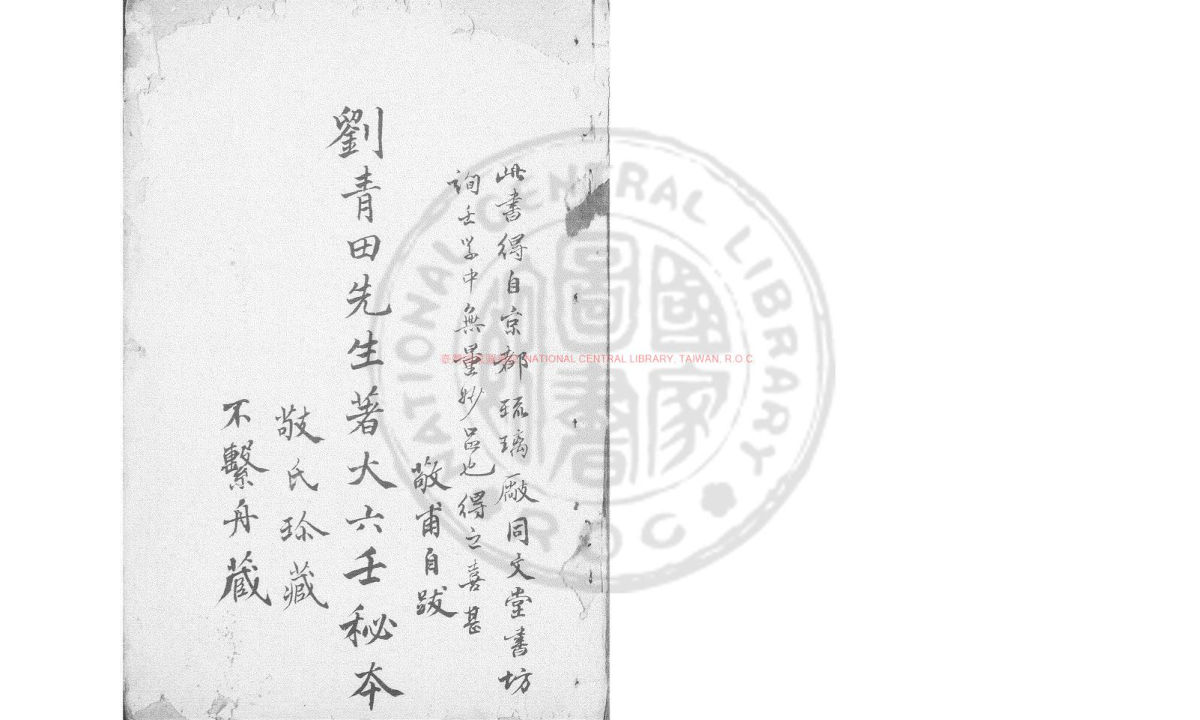 此書得自京都琉璃厰同文堂書坊
詢壬学中無量妙品也得之喜甚
敬甫自跋
劉青田先生著大六壬秘本
敬氏珍藏
不繫舟藏
NATIONAL CENTRAL LIBRARY, TAIWAN, R.O.C
NATIONAL CENTRAL LIBRARY
ROC
國家圖書館